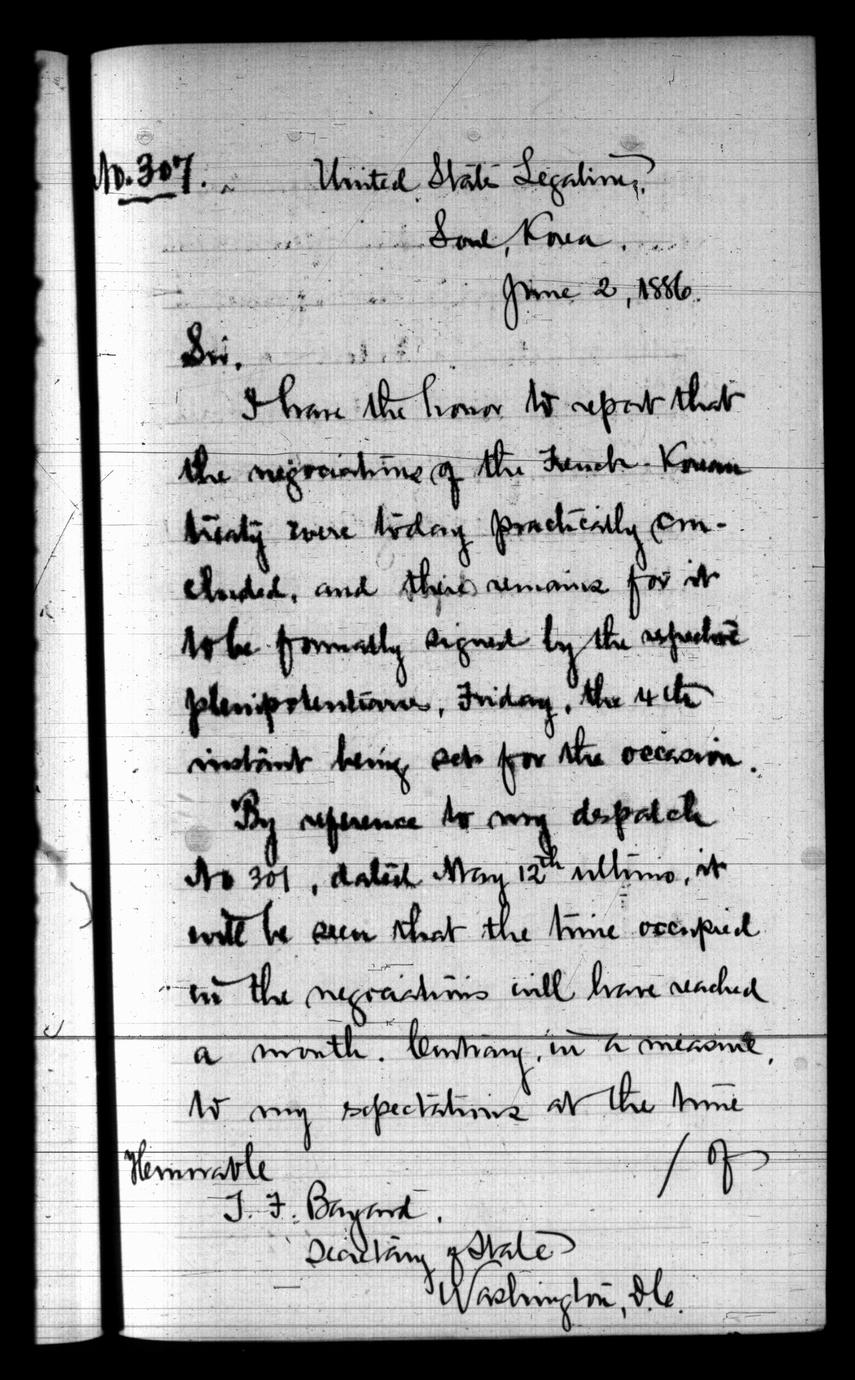 No. 307.
United States Legation,
Soul, Korea.
June 2, 1886.
Sir,
I have the honor to report that
the negociations of the French-Korean
treaty were today practically con-
cluded, and there remains for it
to be formally signed by the respective
plenipotentiaries, Friday, the 4th
instant being set for the occasion.
By reference to my despatch
No 301, dated May 12th ultimo, it
will be seen that the time occupied
in the negociations will have reached
a month. Contrary, in a measure,
to my expectations at the time
/ of
Honorable
T. F. Bayard.
Secretary of State
Washington, D.C.